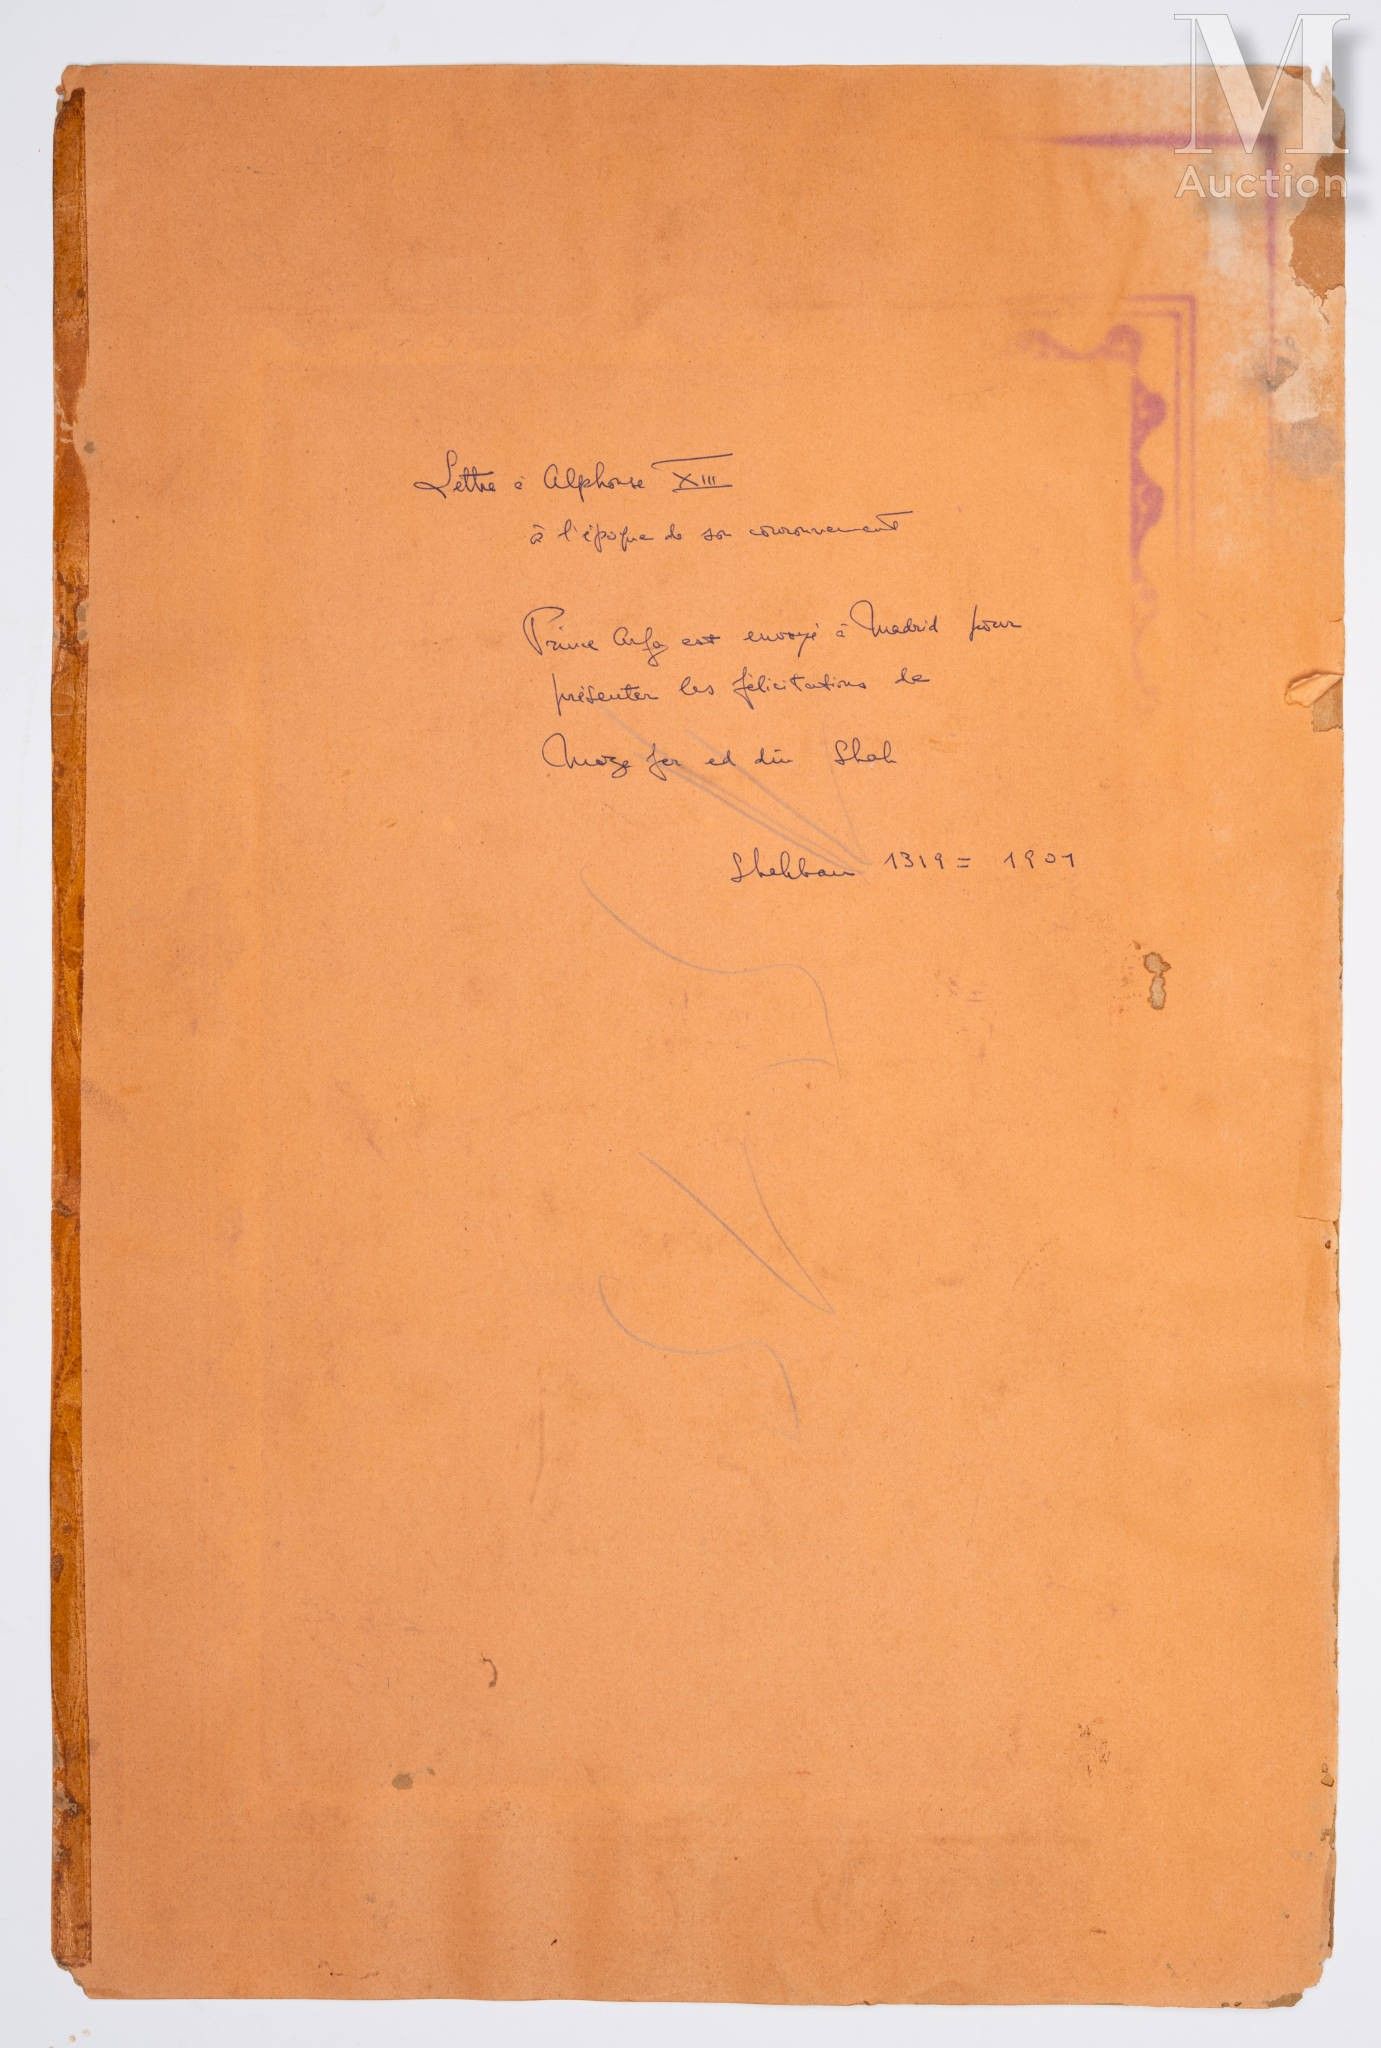 M
Auction
Lettre à Alphonse XIII
à l'époque de son couronnement
Prince Arfa est envoyé à Madrid pour
présenter les félicitations de
Mozaffer ed din Shah
Shahban 1319 = 1901